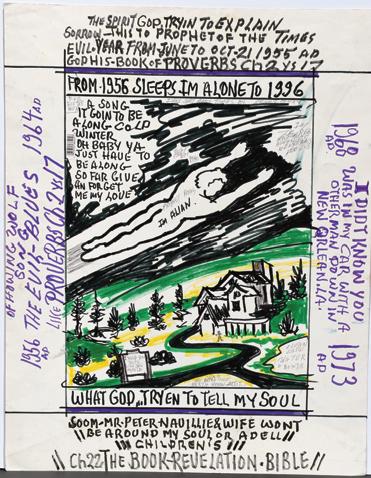 THE SPIRIT GOD, TRYIN TO EXPLAIN
SORROW-THIS TO PROPHET OF THE TIMES
EVIL-YEAR FROM-JUNE TO OCT-21 1955 AD
GOD HIS-BOOK OF PROVERBS Ch 2 VS 17
FROM 1956 SLEEPS. I'M ALONE TO 1996
A SONG
IT GOIN TO BE
A LONG COLD
WINTER
OH BABY YA
JUST HAVE TO
BE ALONG-
SO FAR GIVE
AN FORGET
ME MY LOVE
I'M ALIAN.
WHAT GOD, TRYEN TO TELL MY SOUL
SOOM-MR-PETER-NAVILLIE & WIFE WONT
BE AROUND MY SOUL OR ADELL
CHILDREN'S
Ch 22 THE BOOK-REVELATION-BIBLE
OF HOWING WOLF
SONG
1956 THE EVIL-BLUES 1964 AD
AD LIKE PROVERBS Ch 2 VS 17
I DIDIT KNOW YOU
1968 WAS IN MY CAR WITH A 1973
AD OTHER MAN DOWN IN AD
NEW ORLEAN, LA.